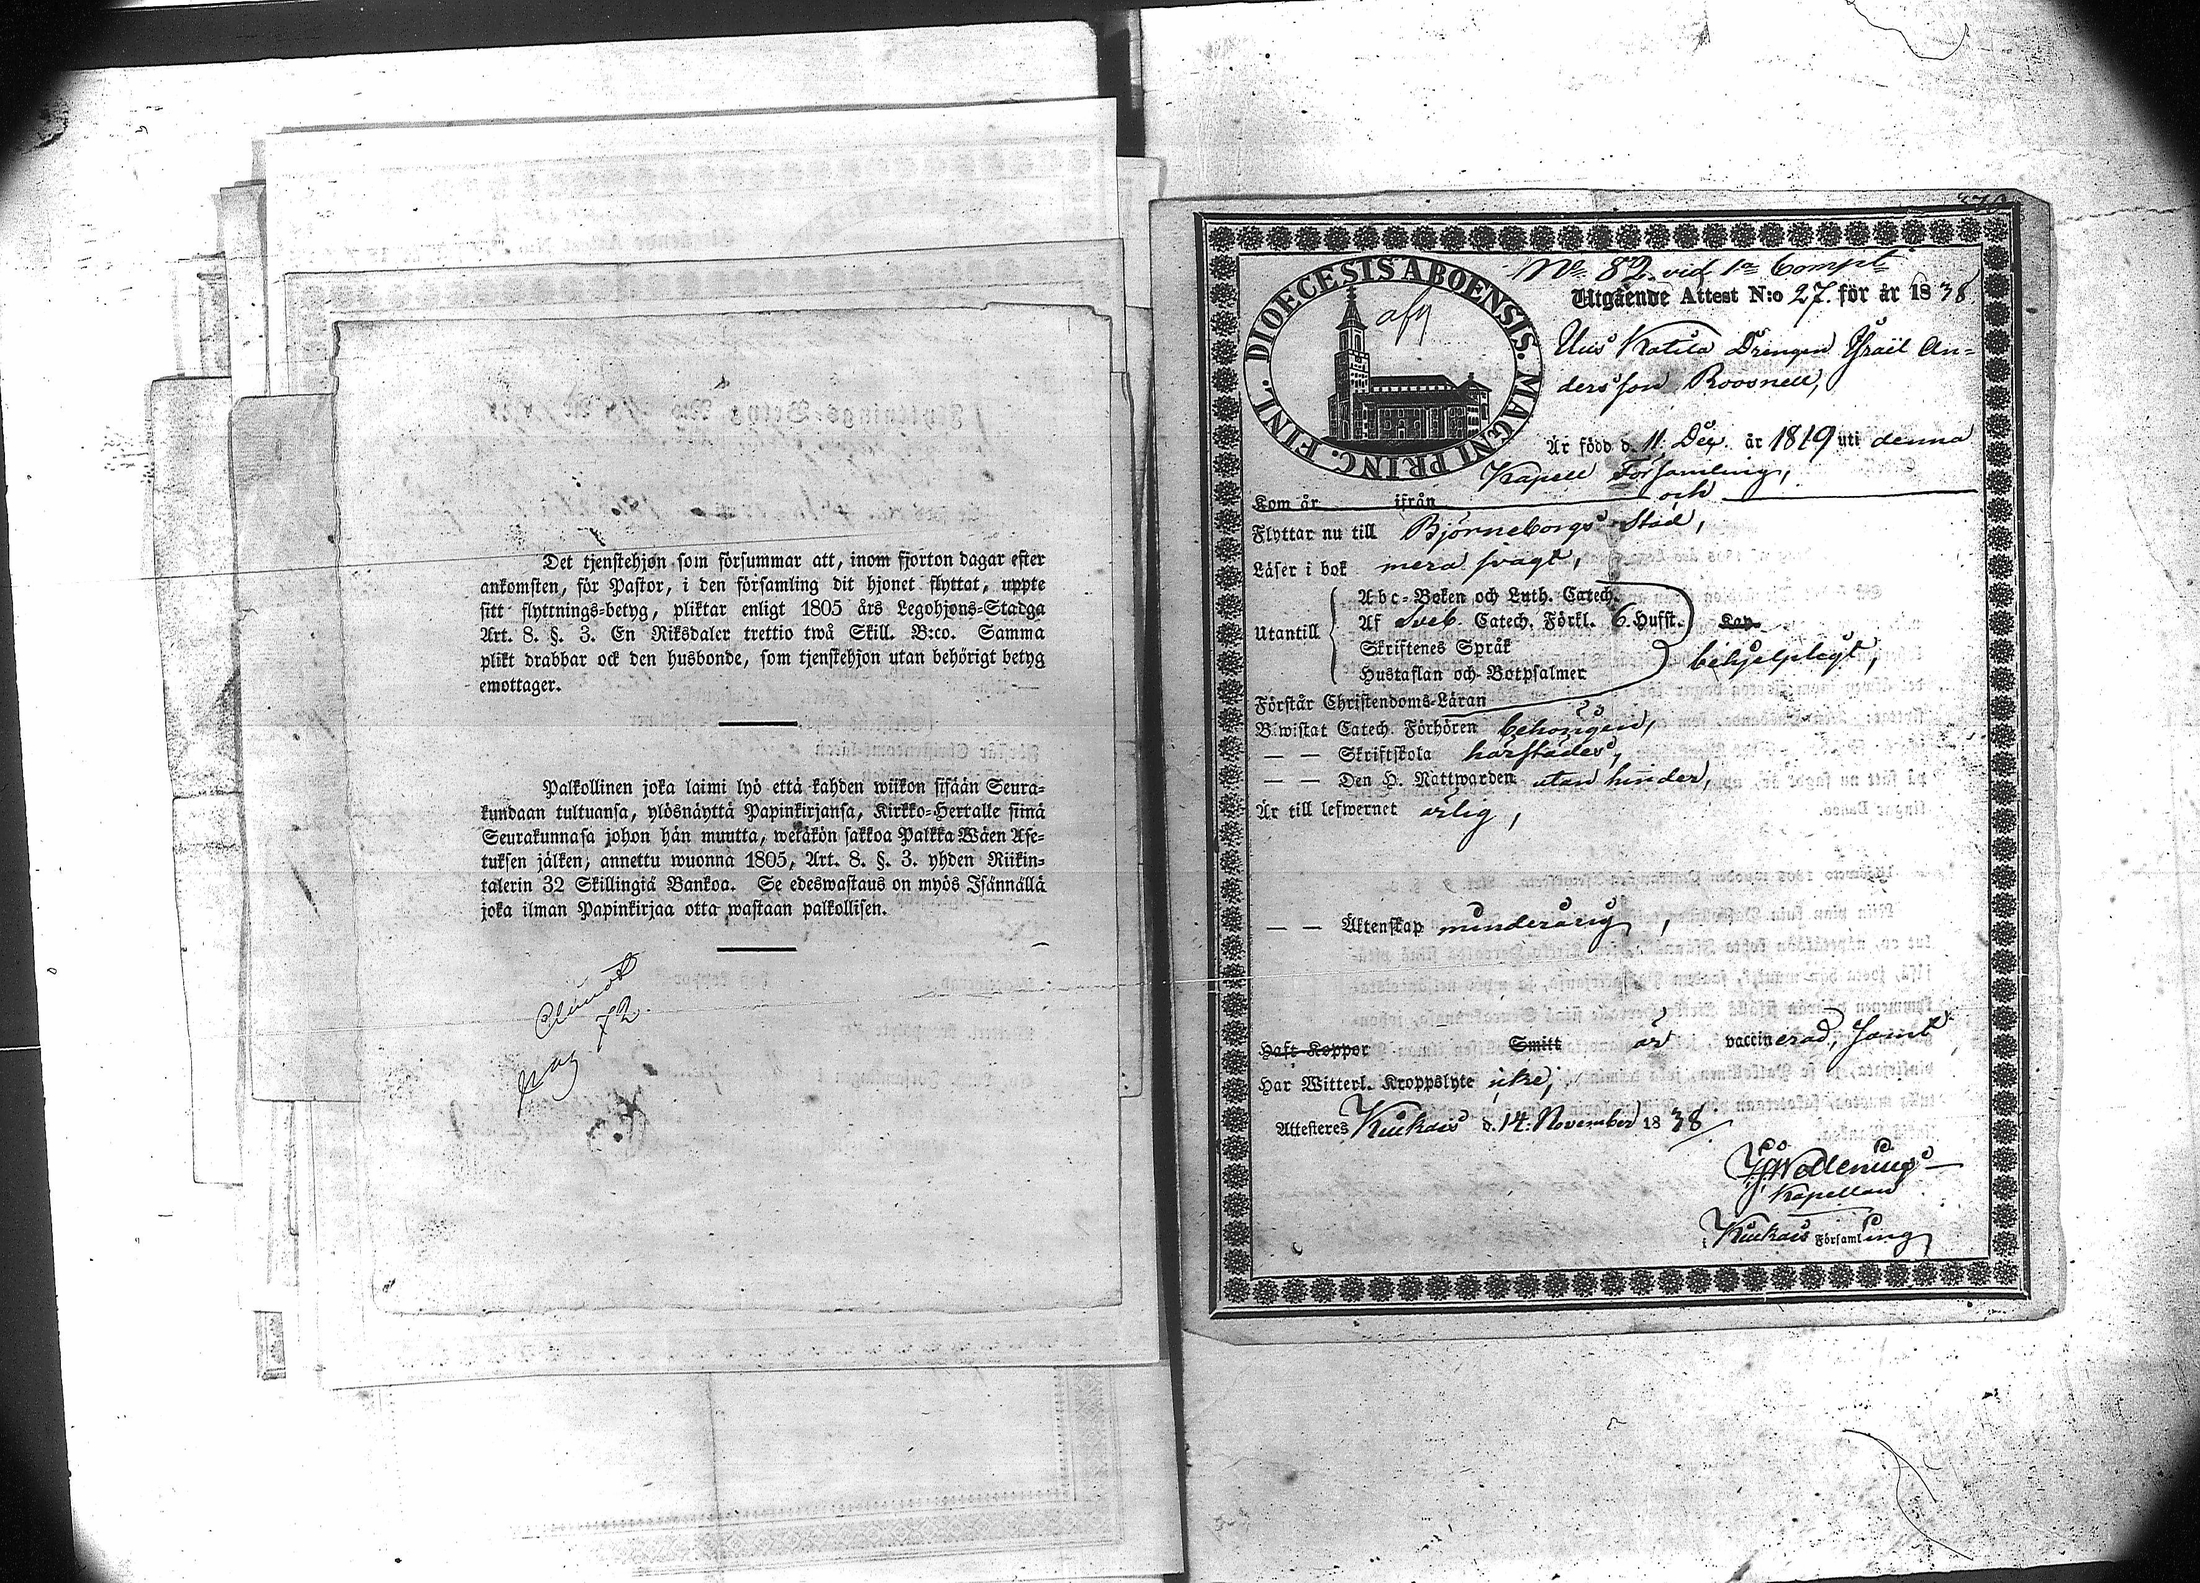 Det tjenstehjon som försummar att, inom fjorton dagar efter
ankomsten, för Pastor, i den församling dit hjonet flyttat, uppte
sitt flyttnings-betyg, pliktar enligt 1805 års Legohjons-Stadga
Art. 8. §. 3. En Riksdaler trettio twå Skill. B:co. Samma
plikt drabbar ock den husbonde, som tjenstehjon utan behörigt betyg
emottager.
Palkollinen joka laimi lyö että kahden wiikon sisään Seura-
kundaan tultuansa, ylösnäyttä Papinkirjansa, Kirkko-Herralle siinä
Seurakunnasa johon hän muutta, wetäkön sakkoa Palkka Wäen Ase-
tuksen jälken, annettu wuonna 1805, Art. 8. §. 3. yhden Riikin-
talerin 32 Skillingiä Bankoa. Se edeswastaus on myös Isännällä
joka ilman Papinkirjaa otta wastaan palkollisen.
72
DIOECESIS ABOENSIS. MAGNI PRINC. FINL.
afg
No. 82. vid 1a Compt
Utgående Attest N:o 27. för år 1838
Drengen Israël An=
dersson Roosnell,
Är född d. 11. Dec. år 1819 uti denna
Kapell Församling,
Kom år ifrån och
Flyttar nu till Björneborgs Stad,
Läser i bok mera svagt,
Utantill
Abc-Boken och Luth. Catech.
Af Sveb. Catech. Förkl. 6. Hufst. Kap.
Skriftenes Språk
Hustaflan och Botpsalmer behjelpligt,
Förstår Christendoms-Läran
Biwistat Catech. Förhören behörigen,
— — Skriftskola härstädes,
— — Den H. Nattwarden utan hinder,
Är till lefwernet ärlig,
— — Äktenskap minderårig,
Haft Koppor Smitt är vaccinerad, samt
Har Witterl. Kroppslyte icke,
Attesteres Kiukais d. 14. November 1838
Kapellan
i Kiukais Församling